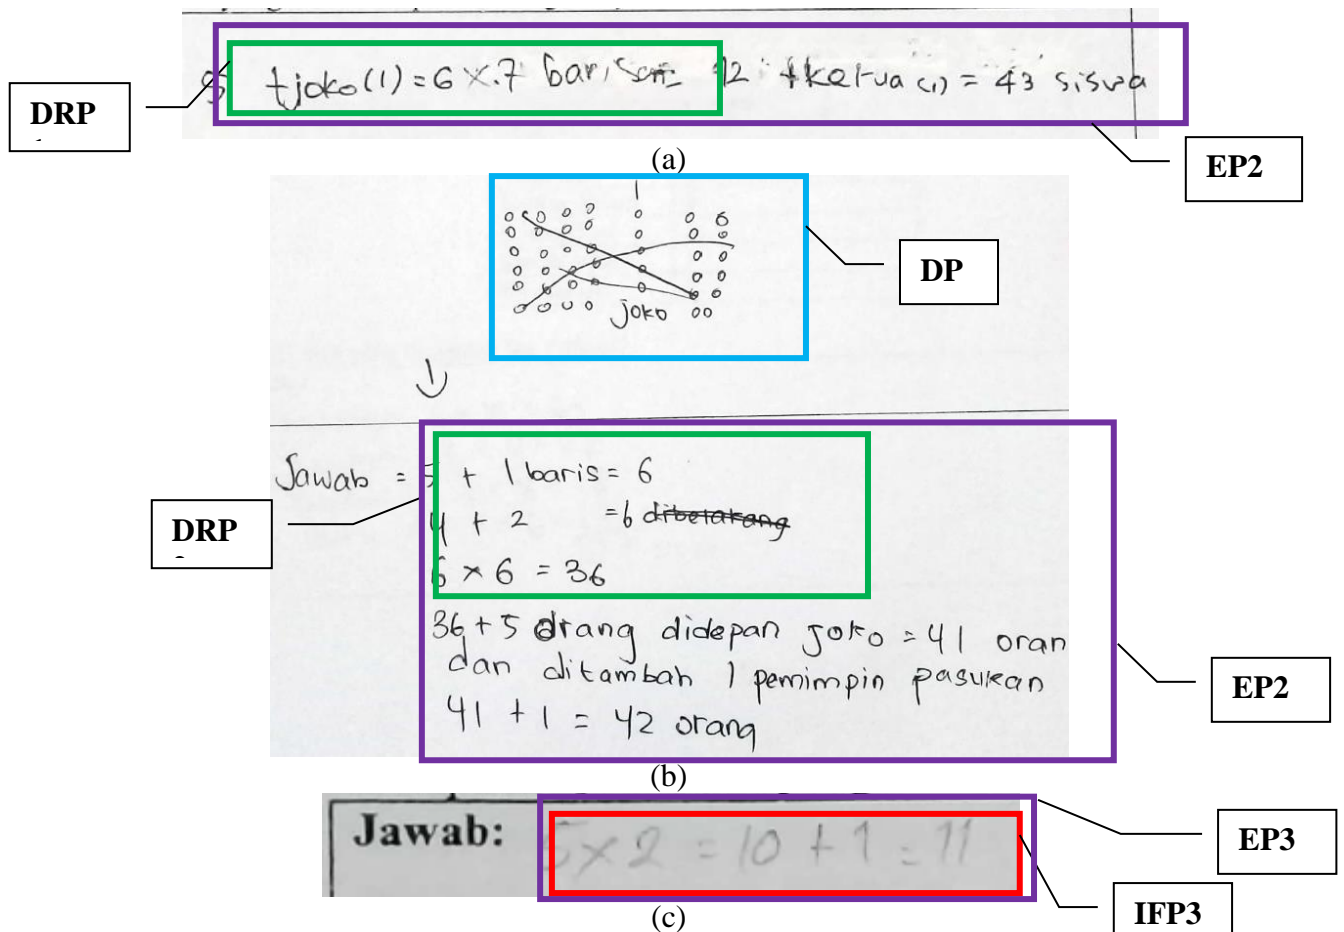 tjoko (1) = 6 x 7 barisan = 42 + ketua (1) = 43 siswa
DRP
EP2
(a)
1
DP
joko
Jawab = 5 + 1 baris = 6
4 + 2 = 6 dibelakang
DRP
6 × 6 = 36
36 + 5 orang didepan joko = 41 oran
dan ditambah 1 pemimpin pasukan
EP2
41 + 1 = 42 orang
(b)
Jawab: 5 x 2 = 10 + 1 = 11
EP3
IFP3
(c)